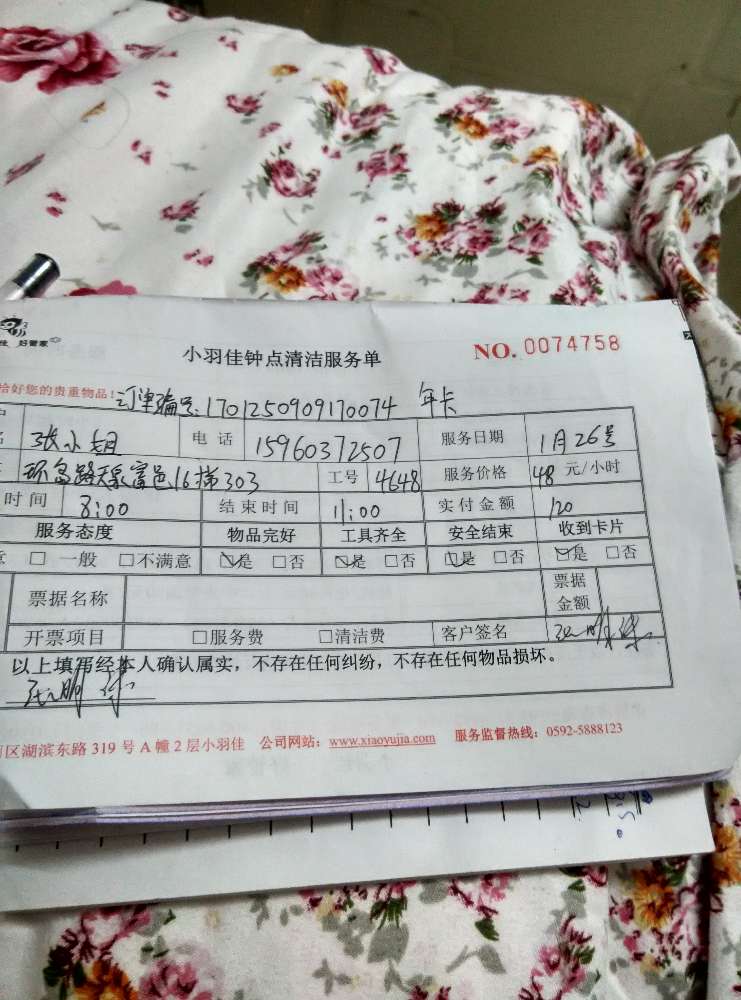 好管家
小羽佳钟点清洁服务单 NO. 0074758
恰好您的贵重物品! 订单编号: 1701250909170074 年卡
张小姐 电话 15960372507 服务日期 1月26号
环岛路天泉富邑16梯303 工号 4648 服务价格 48 元/小时
时间 8:00 结束时间 11:00 实付金额 120
服务态度 物品完好 工具齐全 安全结束 收到卡片
□ 一般 □不满意 □是 □否 □是 □否 □是 □否 □是 □否
票据名称 票据金额
开票项目 □服务费 □清洁费 客户签名
以上填写经本人确认属实,不存在任何纠纷,不存在任何物品损坏。
区湖滨东路 319 号 A 幢 2 层小羽佳 公司网站: www.xiaoyujia.com 服务监督热线: 0592-5888123